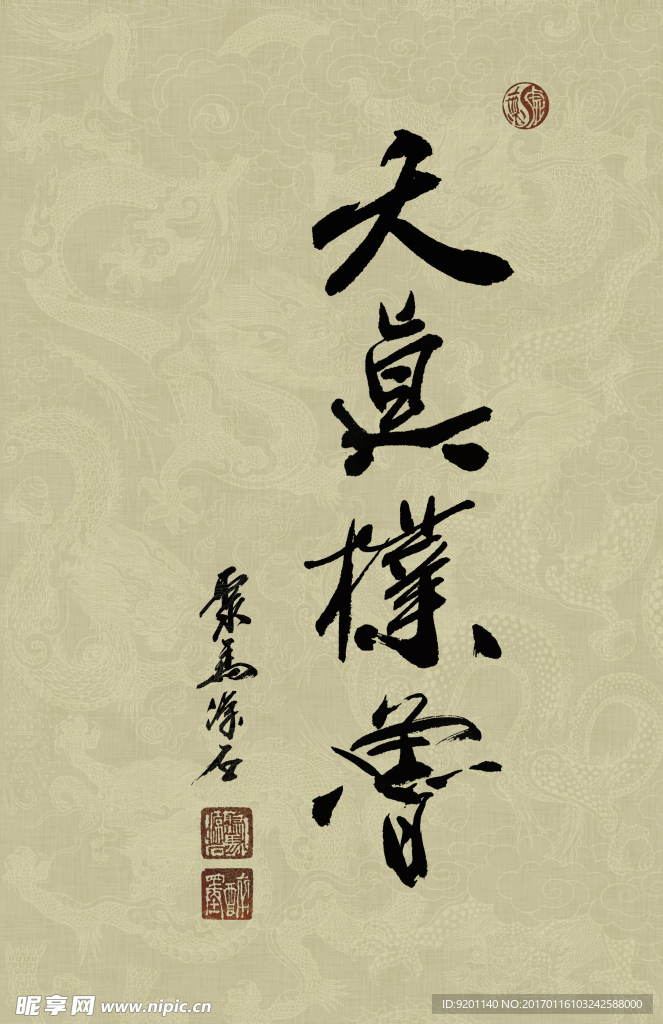 天真樸魯
聚馬深石
昵享网 www.nipic.cn
ID:9201140 NO:20170116103242588000